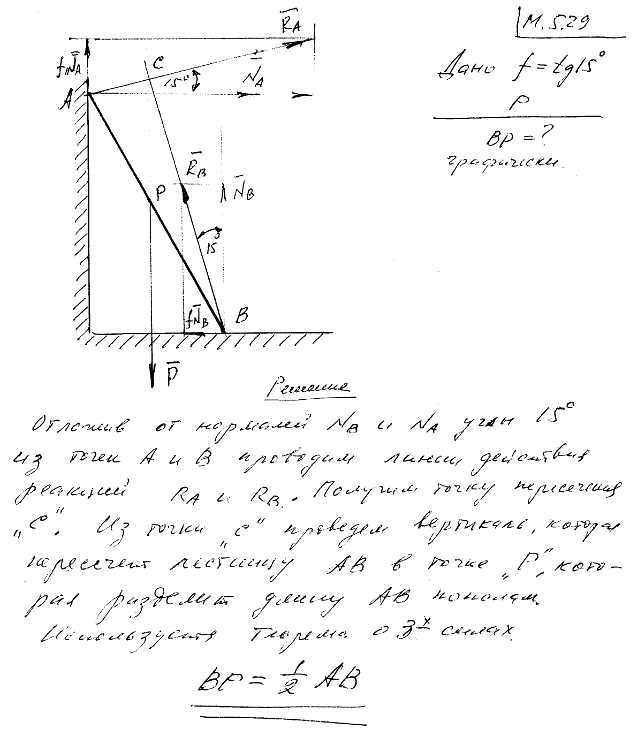 М.5.29
R̅A
f N̅A
C
Дано f = tg15°
15°
N̅A
A
P
BP = ?
графически.
R̅B
P
N̅B
15°
B
f N̅B
P̅
Решение
Отложив от нормалей NB и NA угол 15°
из точек A и B проводим линии действия
реакций RA и RB. Получим точку пересечения
„C“. Из точки „C“ проведем вертикаль, которая
пересечет лестницу AB в точке „P“, кото-
рая разделит длину AB пополам.
Используется теорема о 3х силах.
BP = 1/2 AB